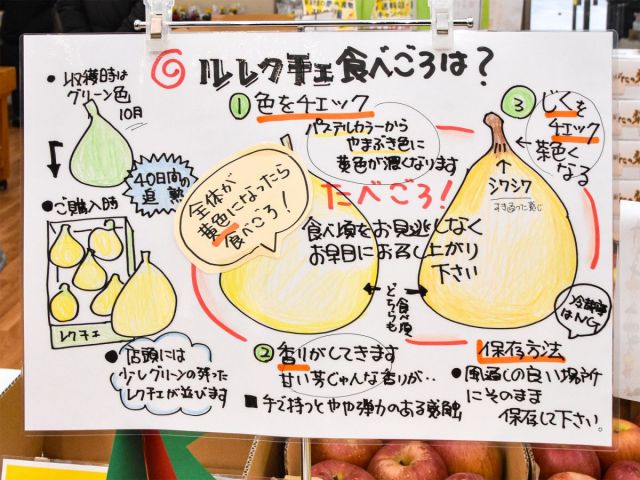 ルレクチェ食べごろは？
●収穫時は
グリーン色
10月
40日間の
追熟
●ご購入時
レクチェ
●店頭には
少しグリーンの残った
レクチェが並びます
①色をチェック
パステルカラーから
やまぶき色に
黄色が濃くなります
全体が
黄色になったら
食べごろ！
たべごろ！
食べ頃をお見逃しなく
お早目にお召し上がり
下さい
食べ頃
どちらも
②香りがしてきます
甘い芳じゅんな香りが‥
■手で持つとやや弾力のある感触
③じくを
チェック
茶色くなる
シワシワ
すき通った感じ
冷蔵庫
はNG
保存方法
●風通しの良い場所
にそのまま
保存して下さい。